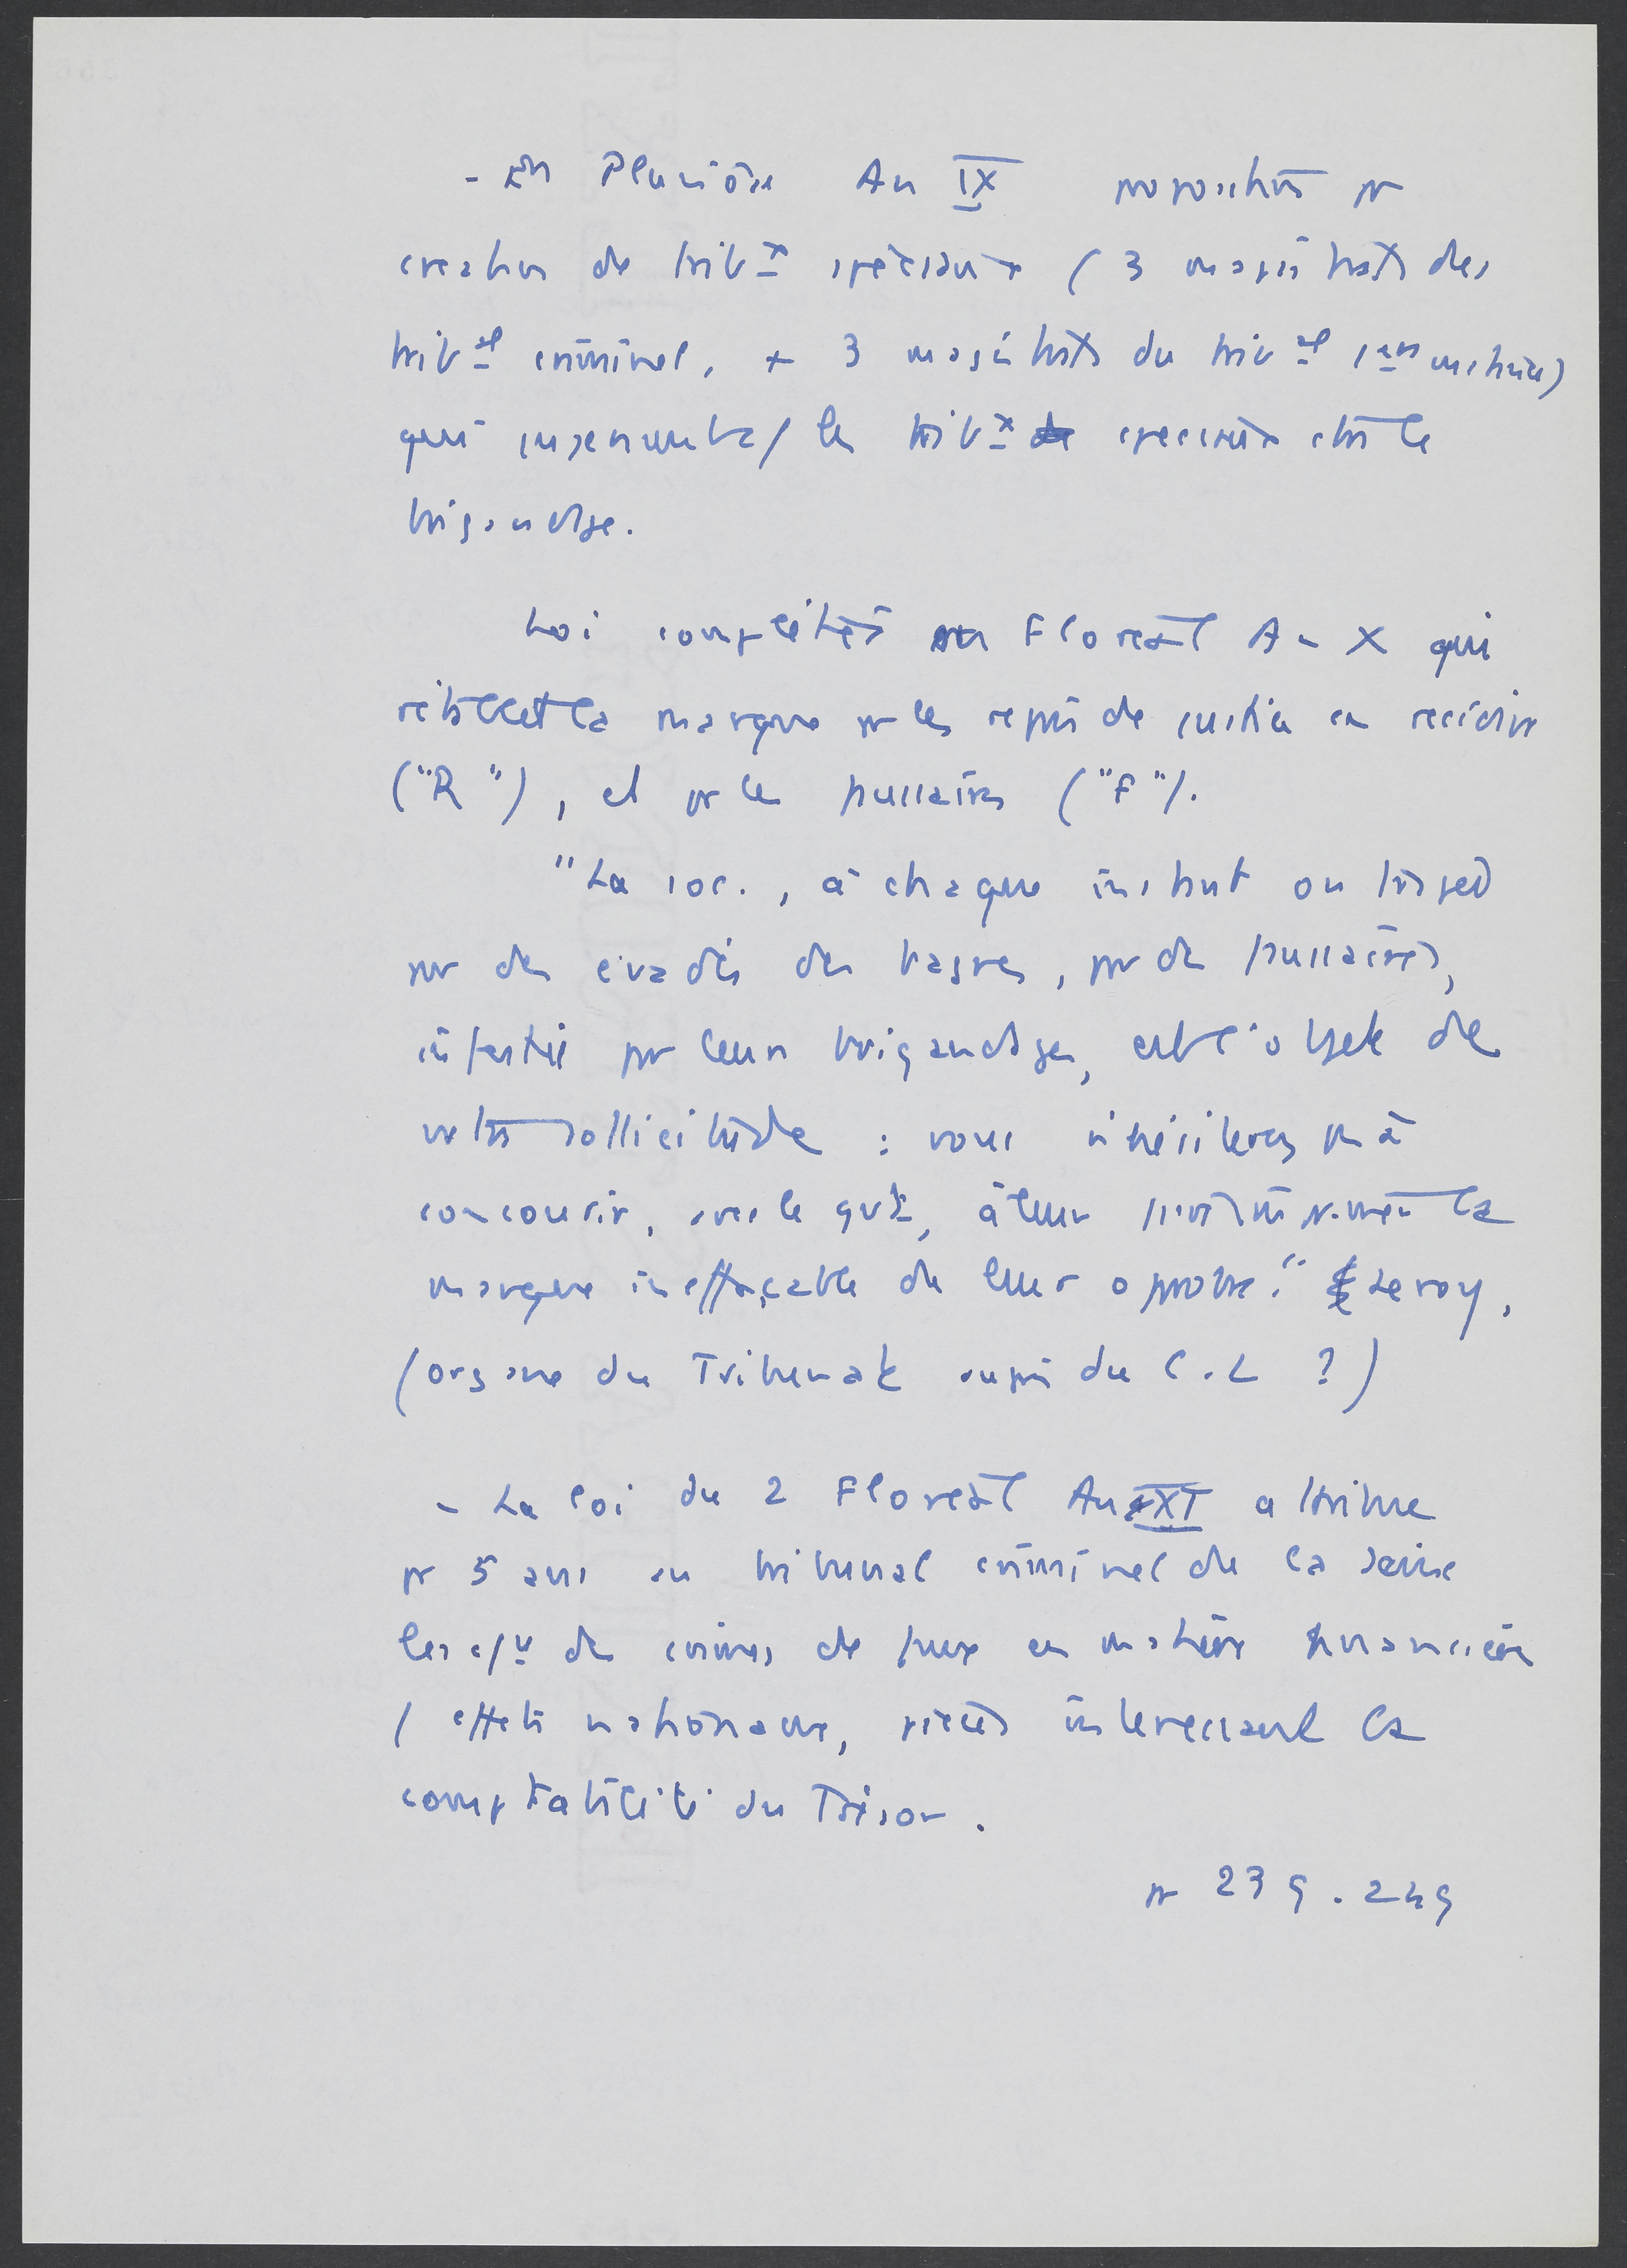 - En Pluviôse An IX proposition pr
creation de tribx spéciaux (3 magistrats des
tribal criminel, + 3 magistrats du tribal 1ère instance)
qui les tribx speciaux ctre le
brigandage.
Loi complétée en Floreal An X qui
rétablit la marque pr les repris de justice en recidive
("R"), et pr les faussaires ("F").
"La soc., à chaque instant outragée
par des évadés des bagnes, par des faussaires,
infestée par leurs brigandages, est l'objet de
votre sollicitude : vous n'hésiterez pas à
concourir, avec le gvt, à leur la
marque ineffaçable de leur opprobre." Leroy,
(organe du Tribunat auprès du C.L ?)
- La loi du 2 Floreal An XI attribue
pr 5 ans au tribunal criminel de la Seine
les de crimes de faux en matière financière
(effets nationaux, pièces interessant la
comptabilité du Trésor.
p 239.249